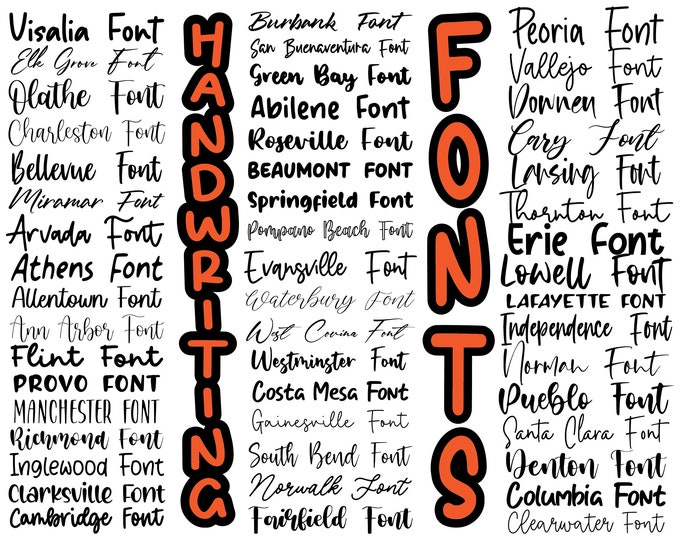 Visalia Font
Elk Grove Font
Olathe Font
Charleston Font
Bellevue Font
Miramar Font
Arvada Font
Athens Font
Allentown Font
Ann Arbor Font
Flint Font
PROVO FONT
MANCHESTER FONT
Richmond Font
Inglewood Font
Clarksville Font
Cambridge Font
HANDWRITING
Burbank Font
San Buenaventura Font
Green Bay Font
Abilene Font
Roseville Font
BEAUMONT FONT
Springfield Font
Pompano Beach Font
Evansville Font
Waterbury Font
West Covina Font
Westminster Font
Costa Mesa Font
Gainesville Font
South Bend Font
Norwalk Font
Fairfield Font
FONTS
Peoria Font
Vallejo Font
Downey Font
Cary Font
Lansing Font
Thornton Font
Erie Font
Lowell Font
LAFAYETTE FONT
Independence Font
Norman Font
Pueblo Font
Santa Clara Font
Denton Font
Columbia Font
Clearwater Font